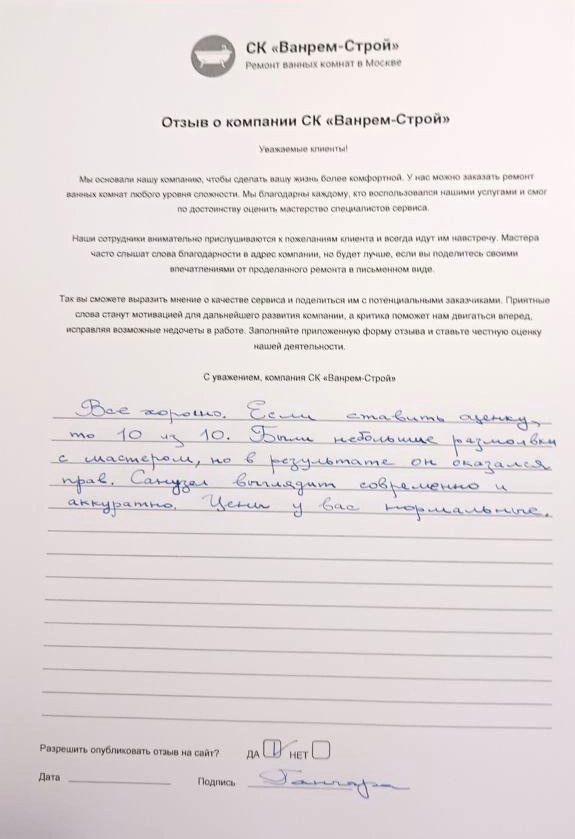 СК «Ванрем-Строй»
Ремонт ванных комнат в Москве
Отзыв о компании СК «Ванрем-Строй»
Уважаемые клиенты!
Мы основали нашу компанию, чтобы сделать вашу жизнь более комфортной. У нас можно заказать ремонт
ванных комнат любого уровня сложности. Мы благодарны каждому, кто воспользовался нашими услугами и смог
по достоинству оценить мастерство специалистов сервиса.
Наши сотрудники внимательно прислушиваются к пожеланиям клиента и всегда идут им навстречу. Мастера
часто слышат слова благодарности в адрес компании, но будет лучше, если вы поделитесь своими
впечатлениями от проделанного ремонта в письменном виде.
Так вы сможете выразить мнение о качестве сервиса и поделиться им с потенциальными заказчиками. Приятные
слова станут мотивацией для дальнейшего развития компании, а критика поможет нам двигаться вперед,
исправляя возможные недочеты в работе. Заполняйте приложенную форму отзыва и ставьте честную оценку
нашей деятельности.
С уважением, компания СК «Ванрем-Строй»
Все хорошо. Если ставить оценку,
то 10 из 10. Были небольшие размолвки
с мастером, но в результате он оказался
прав. Санузел выглядит современно и
аккуратно. Цены у вас нормальные.
Разрешить опубликовать отзыв на сайт? ДА НЕТ
Дата Подпись